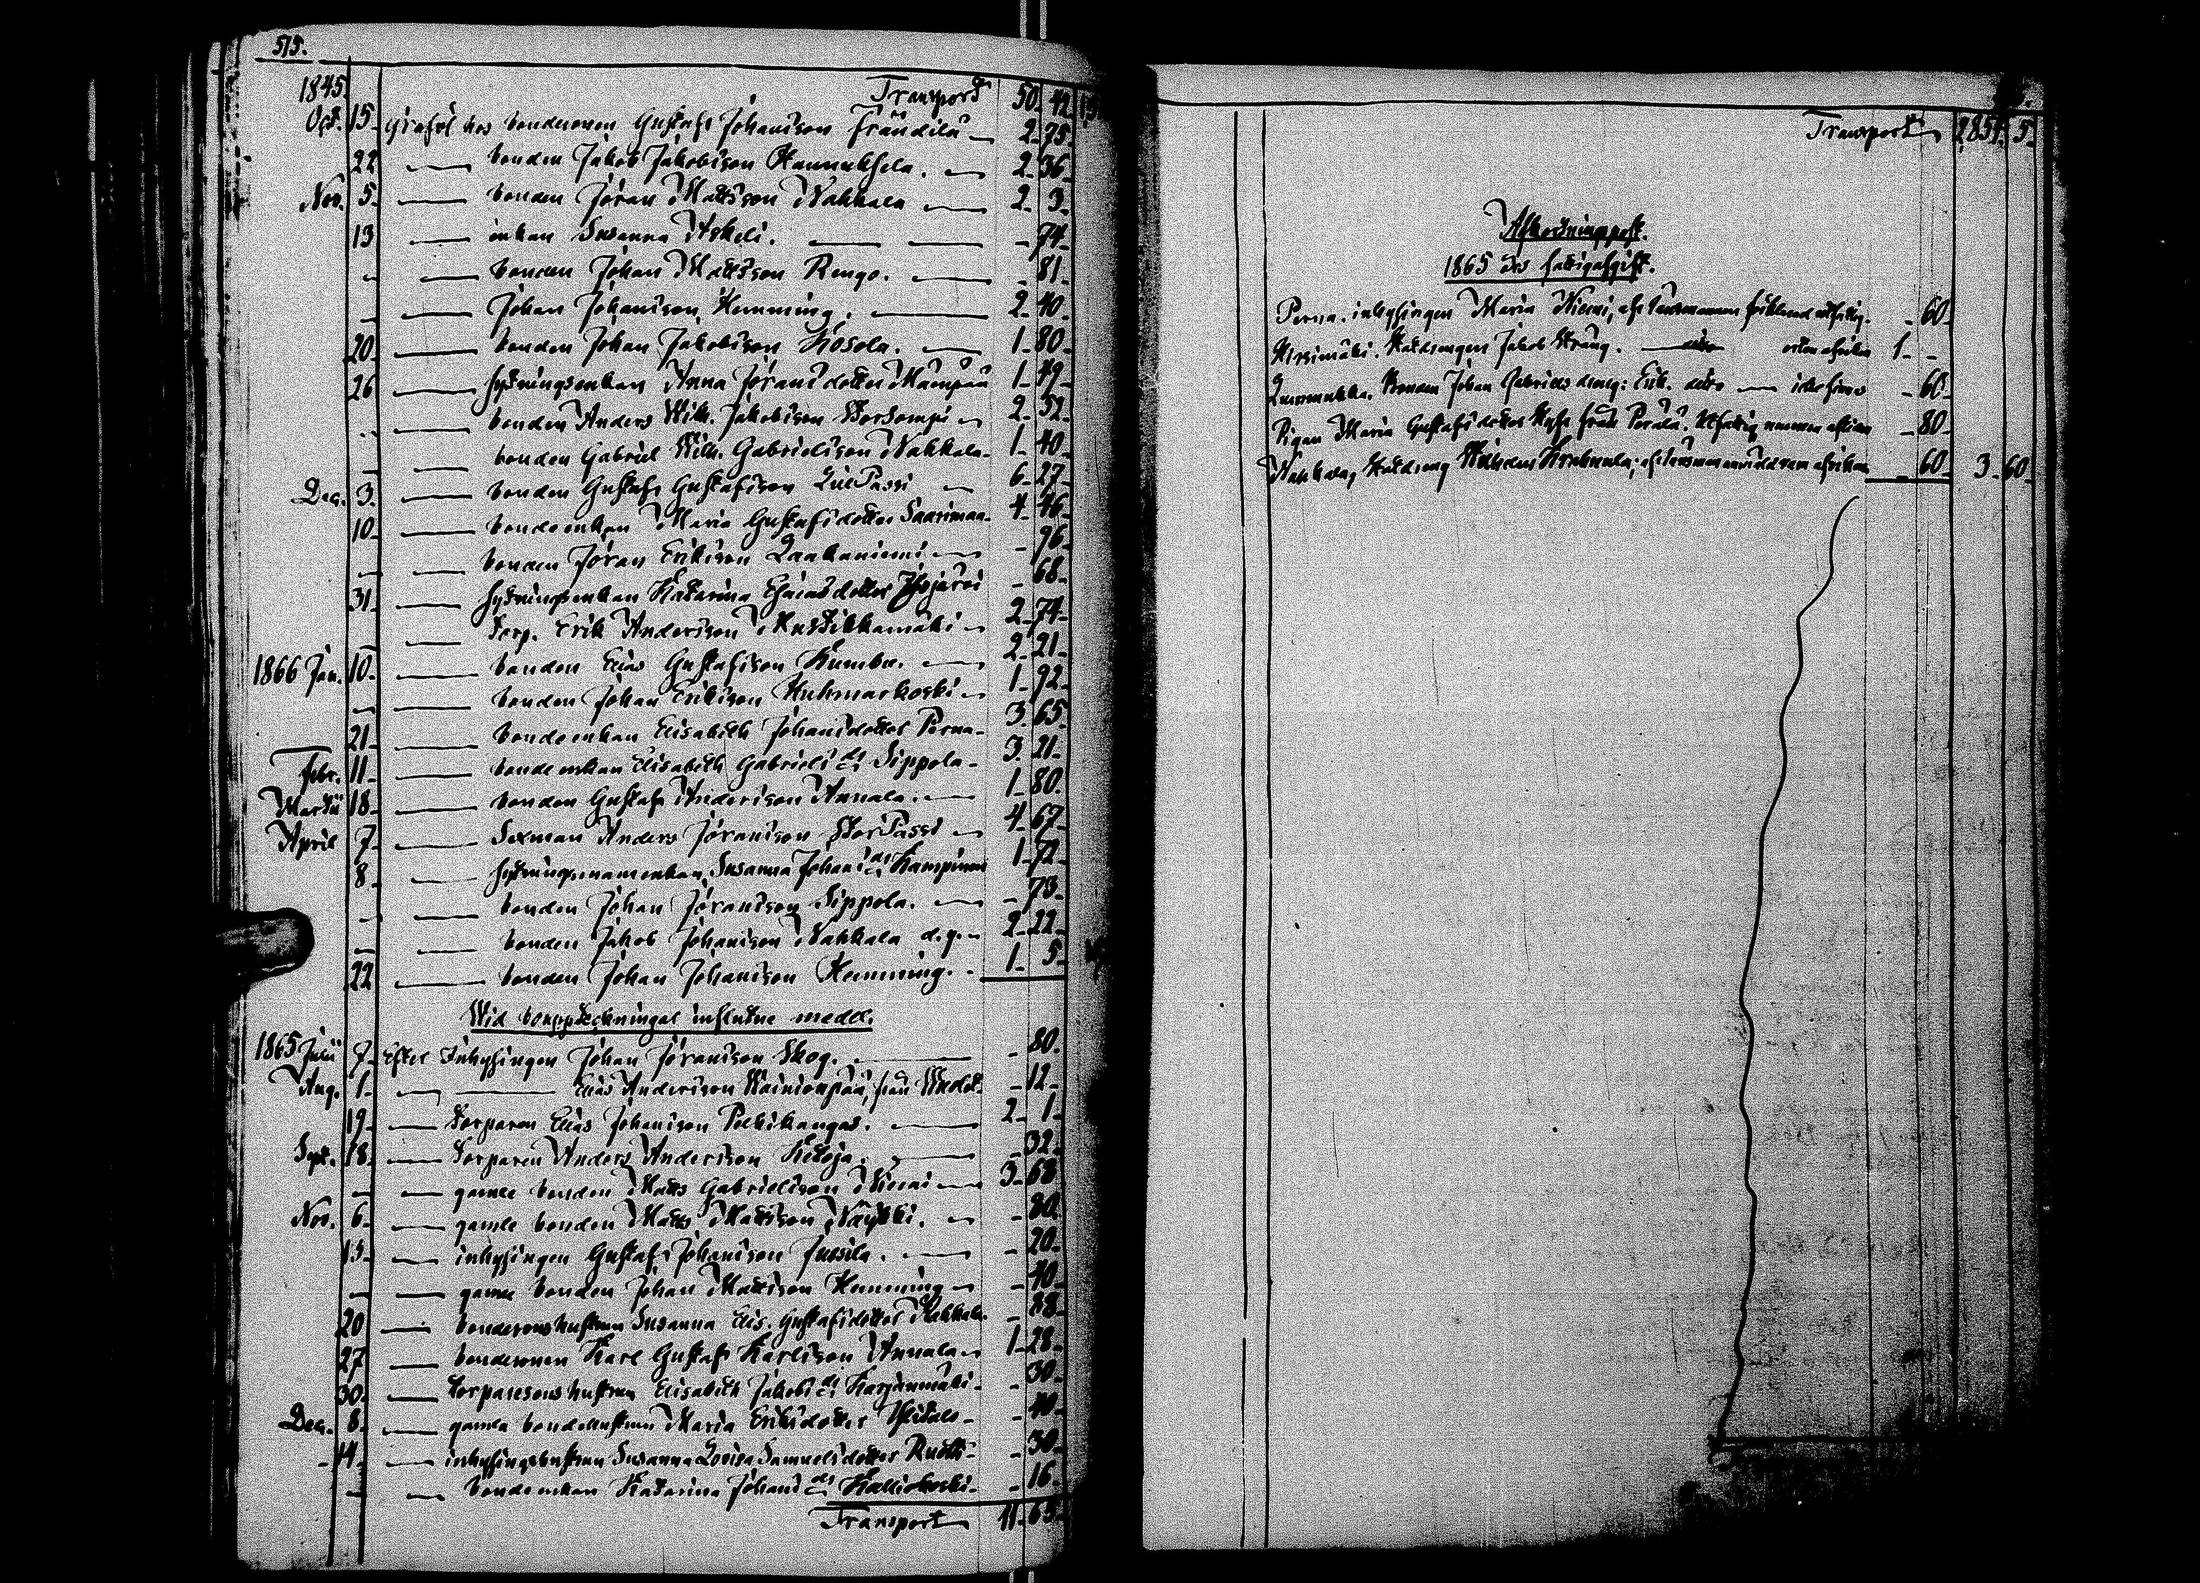 515.
1845 Transport 50. 42
Oct. 15 hos bondesonen Gustaf Johansson Frändilä 2. 75.
22 bonden Jakob Jakobsson Hannuksela. 2. 36
Nov. 5 bonden Jöran Mattsson Nahkala 2. 3.
13 enkan Susanna Askeli. 74
bonden Johan Mattsson Rengo. 81
Johan Johansson Hemming. 2. 40.
20 bonden Johan Jakobsson Kosola. 1. 80
26 sytningsenkan Anna Jöransdotter Mämpää 1. 49
bonden Anders Wilh. Jakobsson Storsompi 2. 52
bonden Gabriel Wilh. Gabrielsson Nahkala 1. 40
Dec. 3. bonden Gustaf Gustafsson LillPassi 6. 27
10 bondeenkan Maria Gustafsdotter Saarimaa 4. 46
bonden Jöran Eriksson Laakaniemi 96
31 sytningsenkan Katarina Esaiasdotter 68
Torp. Erik Andersson Mustikkamäki 2. 74
1866 Jan. 10 bonden Elias Gustafsson Kumbu. 2. 21
bonden Johan Eriksson Kuhmarkoski 1. 92
21 bondeenkan Elisabeth Johansdotter Perna 3. 65
Febr. 11 bondeenkan Elisabeth Gabriels dr Sippola 3. 21
Martii 18 bonden Gustaf Andersson Annala. 1. 80.
April 7 Sexman Anders Jöransson StorPassi 4. 67
8. Susanna Johans dr Kampinen 1. 72
bonden Johan Jöransson Sippola. 73.
bonden Jakob Johansson Nahkala d.y. 2. 22
22 bonden Johan Johansson Hemming. 1. 5
Wid influtne medel.
1865 Julii 7 Efter Inhysingen Johan Jöransson Skog. 80.
Aug. 1 Elias Andersson Wainionpää, från 12
19 Torparen Elias Johansson Peltikangas. 2. 1
Sept. 18 Torparen Anders Andersson Ketoja. 32
gamle bonden Matts Gabrielsson Niemi 3. 68
Nov. 6 gamle bonden Matts Mattsson Näykki. 80.
13 inhysingen Gustaf Johansson Jussila. 20
gamle bonden Johan Mattsson Hemming 40
20 bondesonshustrun Susanna Elis. Gustafsdotter Nahkala 88
27 bondesonen Karl Gustaf Karlsson Annala 1. 28
30. torparesonshustrun Elisabeth Jakobs dr Harjunmäki 30
Dec. 8. gamla bondehustrun Maria Eriksdotter Ylitalo 40
14. inhysingshustrun Susanna Lovisa Samuelsdotter 30
bondeenkan Katarina Johans dr Kalliokoski 16
Transport 11. 65
Transport 2,851. 5
Afkortningspost.
1865 års fattigafgift.
Perna. inhysingen Maria Niemi, af länsmannen förklarad utfattig. 60
Kirsimäki. Hustrungen Jakob Strang. dito 1.
Luomukka. Bonden Johan Gabrielss dreng: Erik. dito icke finnes 60
Pigan Maria Gustafsdotter från Perälä. Utfattig 80
Nahkala, Wilhelm 60 3. 60